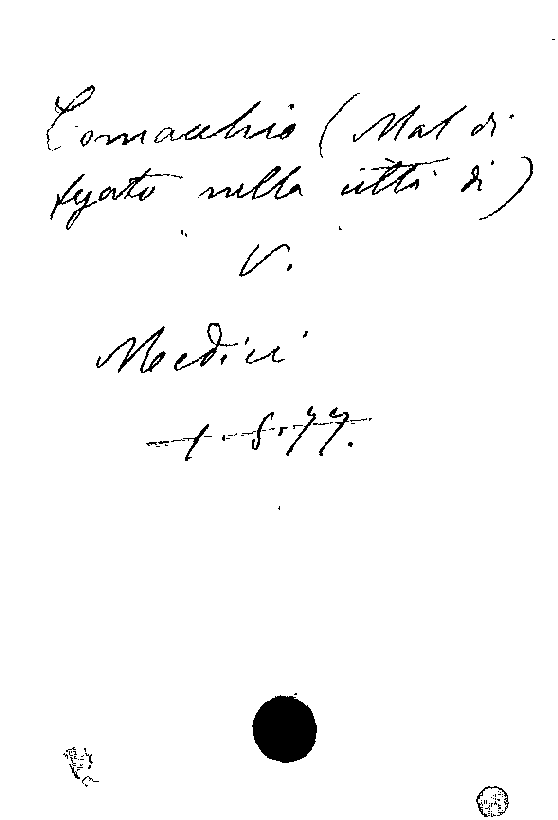 Comacchio (Mal di
fegato nella città di)
V.
Medici
1. S. 77.